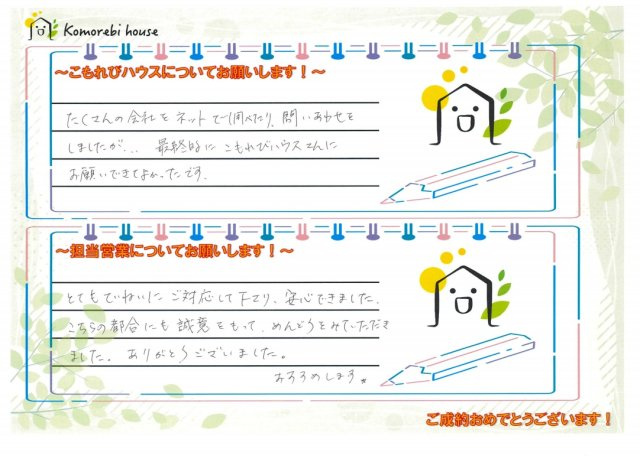 Komorebi house
～こもれびハウスについてお願いします！～
たくさんの会社をネットで調べたり、問いあわせを
しましたが、、最終的にこもれびハウスさんに
お願いできてよかったです。
～担当営業についてお願いします！～
とてもていねいにご対応して下さり、安心できました。
こちらの都合にも誠意をもって、めんどうをみていただき
ました。ありがとうございました。
おすすめします。
ご成約おめでとうございます！